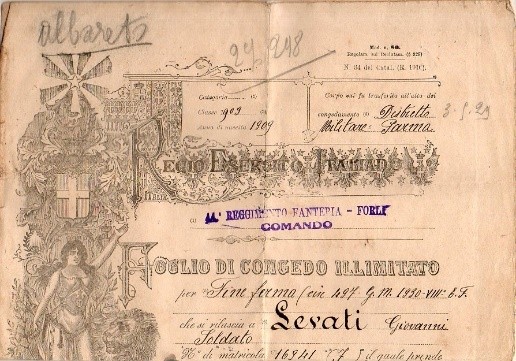 albareto
24/298
Mod. n. 53.
Regolam. sul Reclutam. (§ 825)
N. 34 del Catal. (R. 1910).
Categoria
Classe 909
Anno di nascita 1909
Corpo cui fu trasferito all'atto del
congedamento Distretto
Militare Parma
Regio Esercito Italiano
11° REGGIMENTO FANTERIA - FORLÌ
COMANDO
FOGLIO DI CONGEDO ILLIMITATO
per Fine ferma (circ. 497 G.M. 1930-VIII° E.F.
che si rilascia a Levati Giovanni
Soldato
N.° di matricola 16841 il quale prende